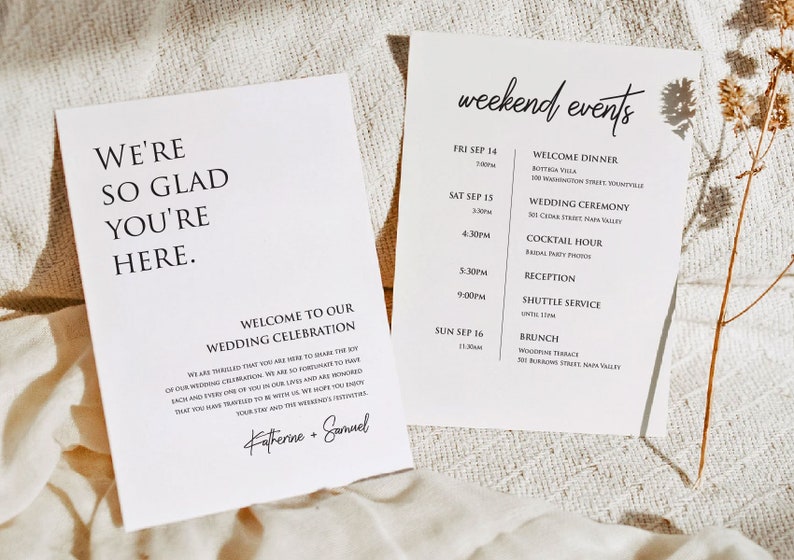 WE'RE
SO GLAD
YOU'RE
HERE.
WELCOME TO OUR
WEDDING CELEBRATION
WE ARE THRILLED THAT YOU ARE HERE TO SHARE THE JOY
OF OUR WEDDING CELEBRATION. WE ARE SO FORTUNATE TO HAVE
EACH AND EVERY ONE OF YOU IN OUR LIVES AND ARE HONORED
THAT YOU HAVE TRAVELED TO BE WITH US. WE HOPE YOU ENJOY
YOUR STAY AND THE WEEKEND'S FESTIVITIES.
Katherine + Samuel
weekend events
FRI SEP 14
7:00PM
WELCOME DINNER
BOTTEGA VILLA
100 WASHINGTON STREET, YOUNTVILLE
SAT SEP 15
3:30PM
WEDDING CEREMONY
501 CEDAR STREET, NAPA VALLEY
4:30PM
COCKTAIL HOUR
BRIDAL PARTY PHOTOS
5:30PM
RECEPTION
9:00PM
SHUTTLE SERVICE
UNTIL 11PM
SUN SEP 16
11:30AM
BRUNCH
WOODPINE TERRACE
501 BURROWS STREET, NAPA VALLEY